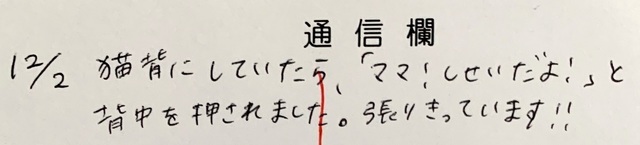 通信欄
12/2 猫背にしていたら、「ママ!しせいだよ!」と
背中を押されました。張りきっています!!